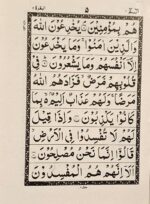 البقرة ٢
٥
الٓمّٓ ١
هُمْ بِمُؤْمِنِيْنَ يُخٰدِعُوْنَ اللّٰهَ
وَالَّذِيْنَ اٰمَنُوْا وَمَا يَخْدَعُوْنَ
اِلَّآ اَنْفُسَهُمْ وَمَا يَشْعُرُوْنَ فِيْ
قُلُوْبِهِمْ مَّرَضٌ فَزَادَهُمُ اللّٰهُ
مَرَضًا وَلَهُمْ عَذَابٌ اَلِيْمٌۢ بِمَا
كَانُوْا يَكْذِبُوْنَ وَاِذَا قِيْلَ
لَهُمْ لَا تُفْسِدُوْا فِي الْاَرْضِ
قَالُوْٓا اِنَّمَا نَحْنُ مُصْلِحُوْنَ
اَلَآ اِنَّهُمْ هُمُ الْمُفْسِدُوْنَ